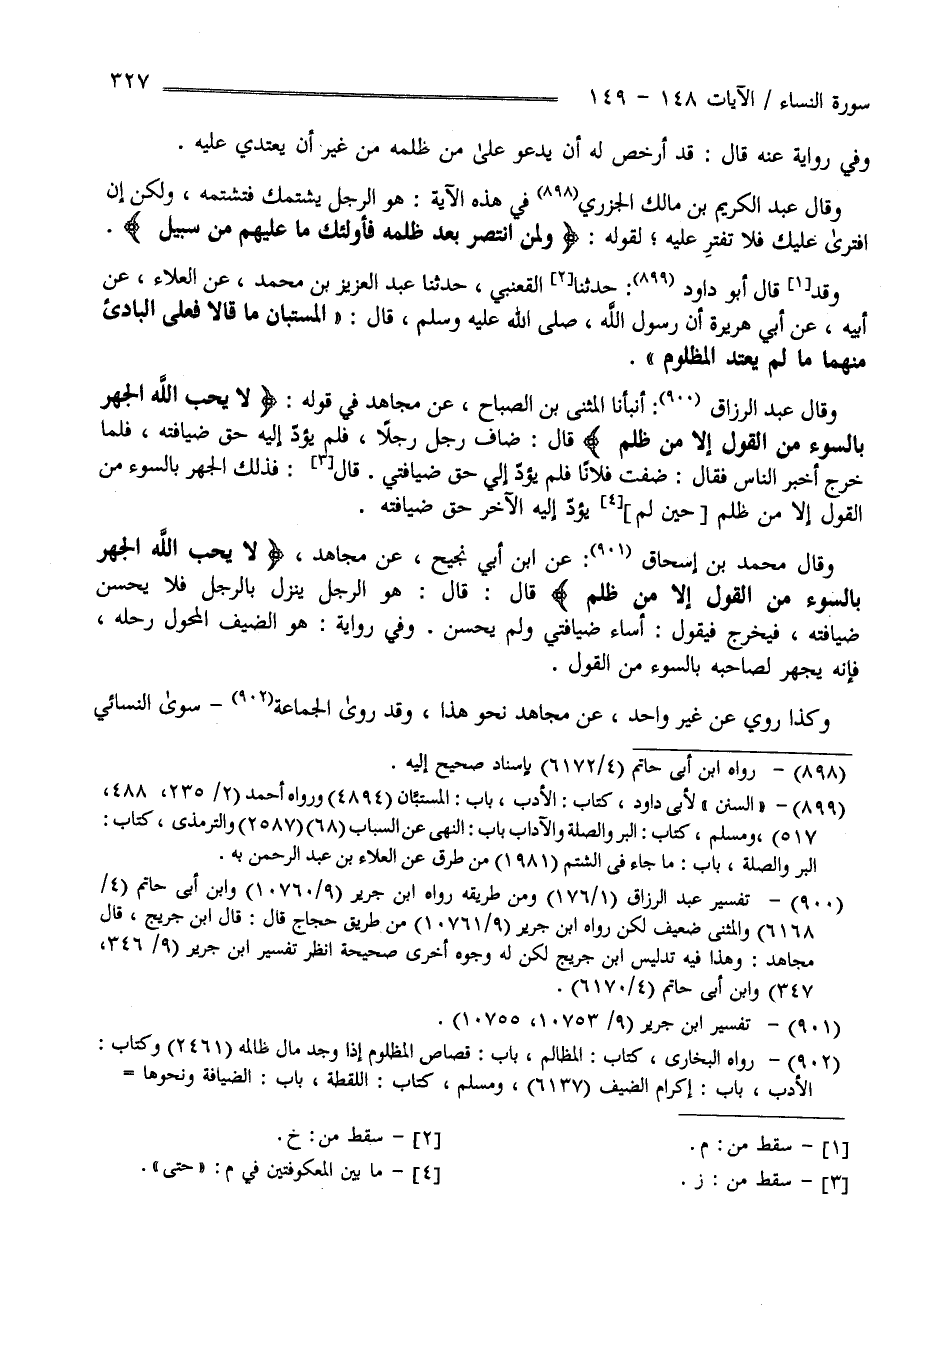 سورة النساء / الآيات ١٤٨ - ١٤٩ ٣٢٧
وفي رواية عنه قال : قد أرخص له أن يدعو علىٰ من ظلمه من غير أن يعتدي عليه .
وقال عبد الكريم بن مالك الجزري(٨٩٨) في هذه الآية : هو الرجل يشتمك فتشتمه ، ولكن إن
افترىٰ عليك فلا تفترِ عليه ؛ لقوله : ﴿ ولمن انتصر بعد ظلمه فأولئك ما عليهم من سبيل ﴾ .
وقد[١] قال أبو داود (٨٩٩): حدثنا[٢] القعنبي ، حدثنا عبد العزيز بن محمد ، عن العلاء ، عن
أبيه ، عن أبي هريرة أن رسول اللَّه ، صلى الله عليه وسلم ، قال : « المستبان ما قالا فعلى البادئ
منهما ما لم يعتد المظلوم » .
وقال عبد الرزاق (٩٠٠): أنبأنا المثنى بن الصباح ، عن مجاهد في قوله : ﴿ لا يحب اللَّه الجهر
بالسوء من القول إلا من ظلم ﴾ قال : ضاف رجل رجلًا ، فلم يؤدّ إليه حق ضيافته ، فلما
خرج أخبر الناس فقال : ضفت فلانًا فلم يؤدّ إلي حق ضيافتي . قال[٣] : فذلك الجهر بالسوء من
القول إلا من ظلم [ حين لم ][٤] يؤدّ إليه الآخر حق ضيافته .
وقال محمد بن إسحاق (٩٠١): عن ابن أبي نجيح ، عن مجاهد ، ﴿ لا يحب اللَّه الجهر
بالسوء من القول إلا من ظلم ﴾ قال : قال : هو الرجل ينزل بالرجل فلا يحسن
ضيافته ، فيخرج فيقول : أساء ضيافتي ولم يحسن . وفي رواية : هو الضيف المحول رحله ،
فإنه يجهر لصاحبه بالسوء من القول .
وكذا روي عن غير واحد ، عن مجاهد نحو هذا ، وقد روىٰ الجماعة(٩٠٢) - سوىٰ النسائي
(٨٩٨) - رواه ابن أبى حاتم (٦١٧٢/٤) بإسناد صحيح إليه .
(٨٩٩) - « السنن » لأبى داود ، كتاب : الأدب ، باب : المستبَّان (٤٨٩٤) ورواه أحمد (٢/ ٢٣٥، ٤٨٨،
٥١٧) ،ومسلم ، كتاب : البر والصلة والآداب باب : النهى عن السباب (٦٨)(٢٥٨٧) والترمذى ، كتاب :
البر والصلة ، باب : ما جاء فى الشتم (١٩٨١) من طرق عن العلاء بن عبد الرحمن به .
(٩٠٠) - تفسير عبد الرزاق (١٧٦/١) ومن طريقه رواه ابن جرير (١٠٧٦٠/٩) وابن أبى حاتم (٤/
٦١٦٨) والمثنى ضعيف لكن رواه ابن جرير (١٠٧٦١/٩) من طريق حجاج قال : قال ابن جريج ، قال
مجاهد : وهذا فيه تدليس ابن جريج لكن له وجوه أخرى صحيحة انظر تفسير ابن جرير (٩/ ٣٤٦،
٣٤٧) وابن أبى حاتم (٦١٧٠/٤) .
(٩٠١) - تفسير ابن جرير (٩/ ١٠٧٥٣، ١٠٧٥٥) .
(٩٠٢) - رواه البخارى ، كتاب : المظالم ، باب : قصاص المظلوم إذا وجد مال ظالمه (٢٤٦١) وكتاب :
الأدب ، باب : إكرام الضيف (٦١٣٧) ، ومسلم ، كتاب : اللقطة ، باب : الضيافة ونحوها =
[١] - سقط من: م. [٢] - سقط من: خ.
[٣] - سقط من : ز . [٤] - ما بين المعكوفتين في م: «حتى».